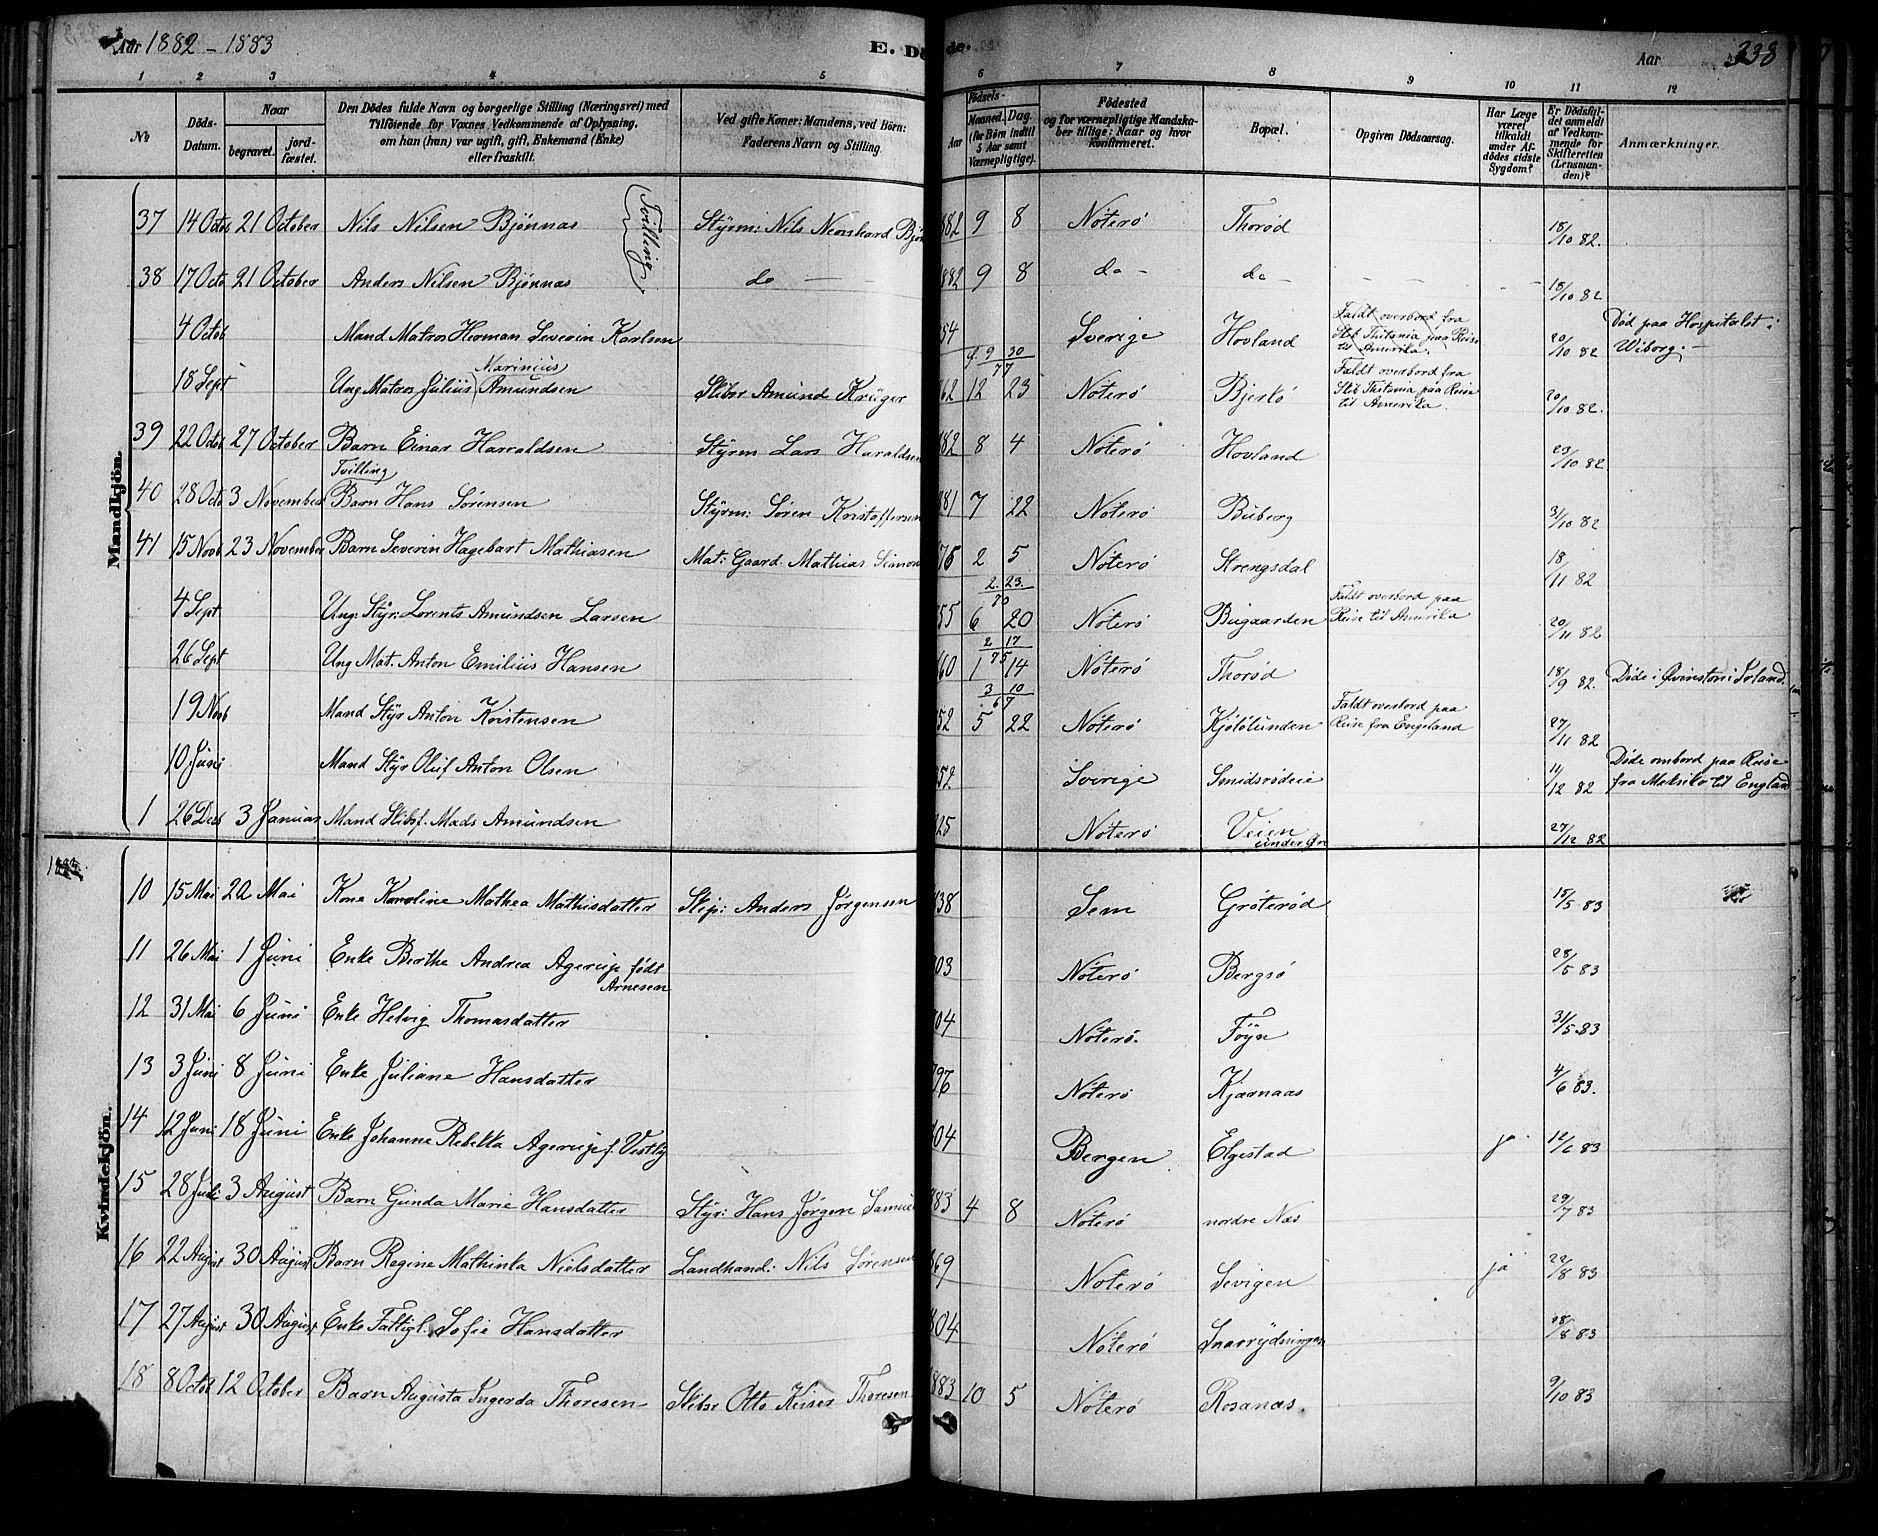 Aar 1882 - 1883
E. Dö de.
Aar 338
1 2 3 4 5 6 7 8 9 10 11 12
No
Döds-Datum.
Naar begravet. jord-fæstet.
Den Dödes fulde Navn og borgerlige Stilling (Næringsvei) med Tilföiende for Voxnes Vedkommende af Oplysning, om han (hun) var ugift, gift, Enkemand (Enke) eller fraskilt.
Ved gifte Koner: Mandens, ved Börn: Faderens Navn og Stilling
Födsels- Aar Maaned. Dag. (for Börn indtil 5 Aar samt Værnepligtige).
Födested og for værnepligtige Mandskaber tillige: Naar og hvor konfirmeret.
Bopæl.
Opgiven Dödsaarsag.
Har Læge været tilkaldt under Afdödes sidste Sygdom?
Er Dödsfaldet anmeldt af Vedkommende for Skifteretten (Lensmanden)?
Anmærkninger.
Mandkjön.
37 14 Octob 21 October Nils Nilsen Bjønnas Tvilling Styrm: Nils Neonhard Bjön 882 9 8 Nöterö Thorød 18/10 82.
38 17 Octo 21 October Anders Nilsen Bjønnas do — 882 9 8 do — do — 18/10 82
4 Octob Mand Matros Herman Severin Karlsen 54 Sverige Hovland Faldt overbord fra Skb Thitania paa Reise til Amerika. 20/10 82 Död paa Hospitalet i Wiborg. —
18 Sept Ung Matros Julius Marinius Amundsen Skibsr Amund Krüger 62 12 23 9 30 77 Nöterö Bjerkö Faldt overbord fra Skb Thitania paa Reise til Amerika. 20/10 82.
39 22 Octob 27 October Barn Einar Harraldsen Styrm Lars Haraldsen 882 8 4 Nöterö Hovland 23/10 82
40 28 Octo 3 November Tvilling Barn Hans Sørensen Styrm: Søren Kristoffersen 881 7 22 Nöterö Buberg 31/10 82
41 15 Novb 23 November Barn Severin Hagebart Mathiasen Mat: Gaard. Mathias Simon 76 2 5 Nöterö Strengsdal 18/11 82
4 Sept Ung: Styr: Lorents Amundsen Larsen 55 6 20 2. 23. 70 Nöterö Bugaarden Faldt overbord paa Reise til Amerika 20/11 82
26 Sept Ung Mat. Anton Emilius Hansen 60 1 14 2 17 75 Nöterö Thorød 18/9 82. Döde i Qvinston i Irland.
19 Novb Mand Styr Anton Kristensen 52 5 22 3 10 67 Nöterö Kjölölunden Faldt overbord paa Reise fra Engeland 27/11 82
10 Juni Mand Styr Oluf Anton Olsen 52. Sverige Smidsrødeie 11/12 82 Döde ombord paa Reise fra Meksiko til England
1 26 Decb 3 Januar Mand Skibsf. Mads Amundsen 25 Nöterö Veien under Ørs 27/12 82
1883
Kvindekjön.
10 15 Mai 20 Mai Kone Karoline Mathea Mathisdatter Skip: Anders Jørgensen 38 Sem Gröterød 15/5 83
11 26 Mai 1 Juni Enke Berthe Andrea Agerup født Arnesen 03 Nöterö Bergsö 28/5 83
12 31 Mai 6 Juni Enke Helvig Thomasdatter 04 Nöterö. Föyn 31/5 83
13 3 Juni 8 Juni Enke Juliane Hansdatter 96 Nöterö Kjærnaas 4/6 83.
14 12 Juni 18 Juni Enke Johanne Rebekka Agerup f. Vestby 04 Bergen Elgestad ja 12/6 83
15 28 Juli 3 August Barn Gunda Marie Hansdatter Styr: Hans Jørgen Samue 83 4 8 Nöterö nordre Næs 29/7 83
16 22 August 30 August Barn Regine Mathinka Nielsdatter Landhand: Nils Sørensen 69 Nöterö Sevigen ja 22/8 83
17 27 August 30 August Enke Fattigl. Sofie Hansdatter 804 Nöterö Snarrydningen 28/8 83
18 8 Octob 12 October Barn Augusta Ingerda Thoresen Skibsr Otto Keiser Thoresen 883 10 5 Nöterö Rosanæs. 9/10 83